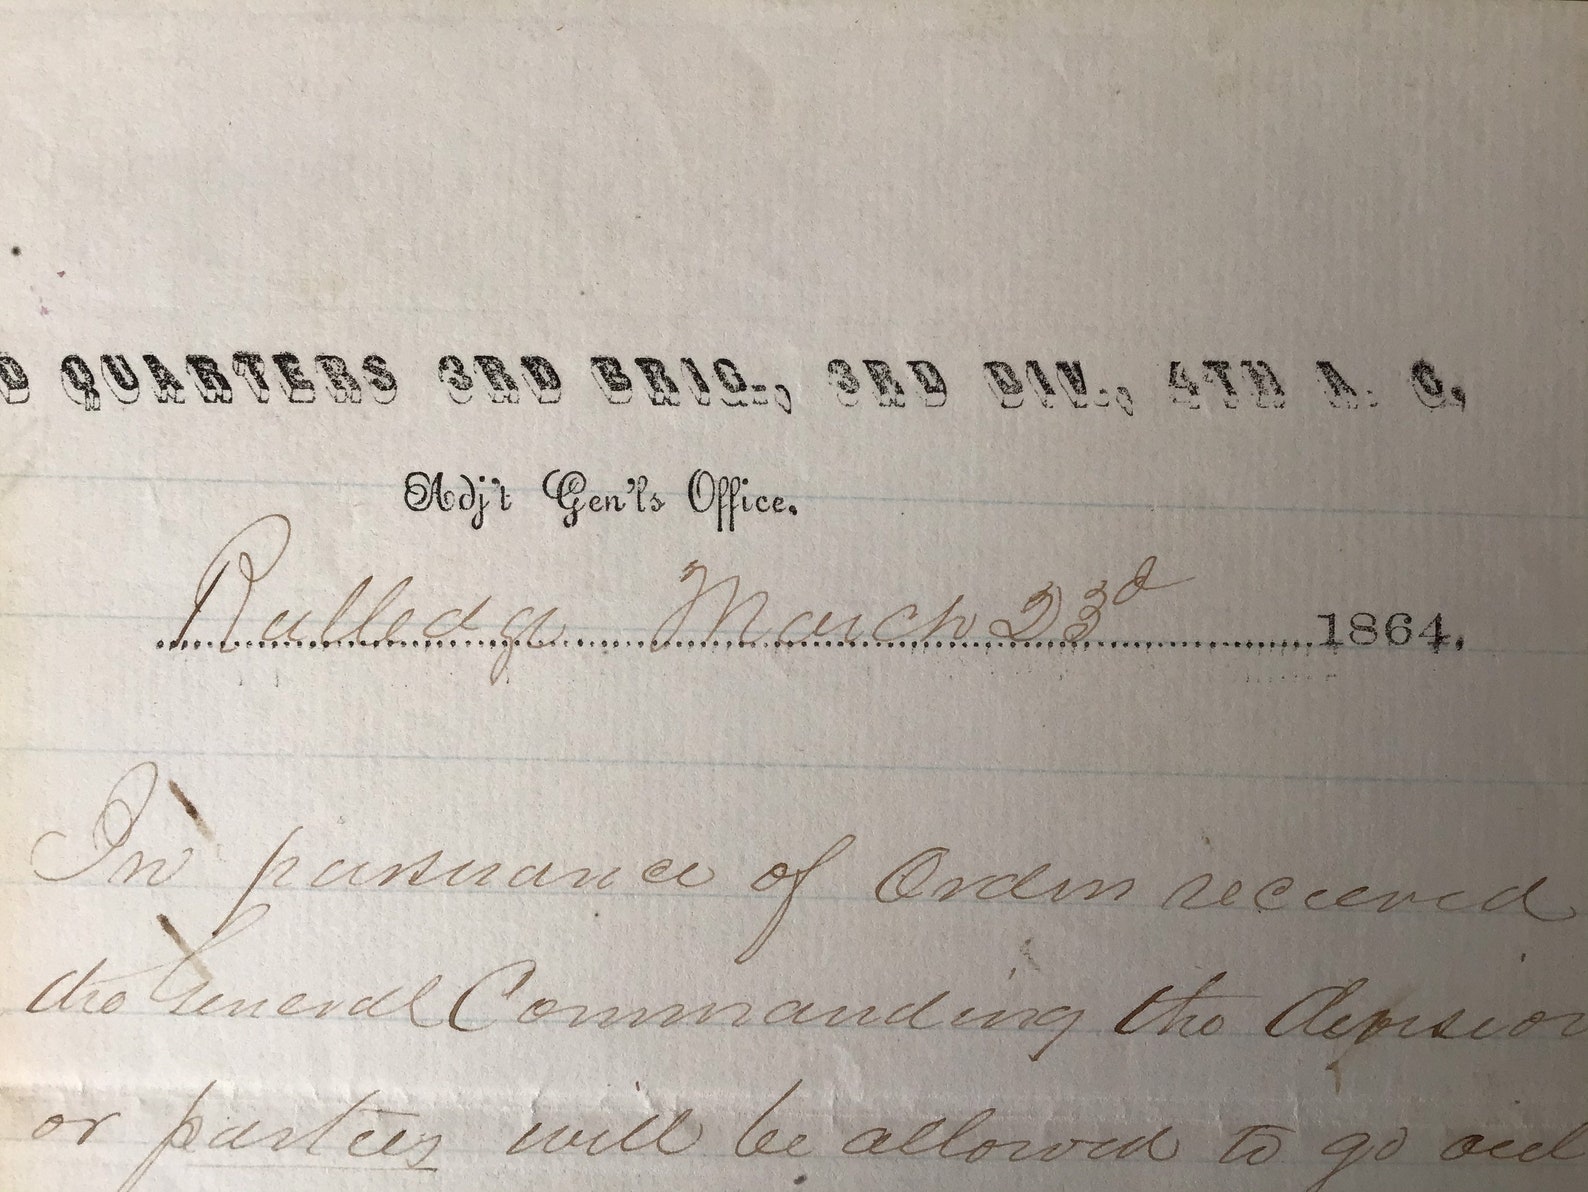 D QUARTERS 3RD BRIG., 3RD DIV., 4TH A. C.
Adj't Gen'ls Office.
Rutledge March 23d 1864.
In pursuance of Orders received
the General Commanding the division
or parties will be allowed to go out